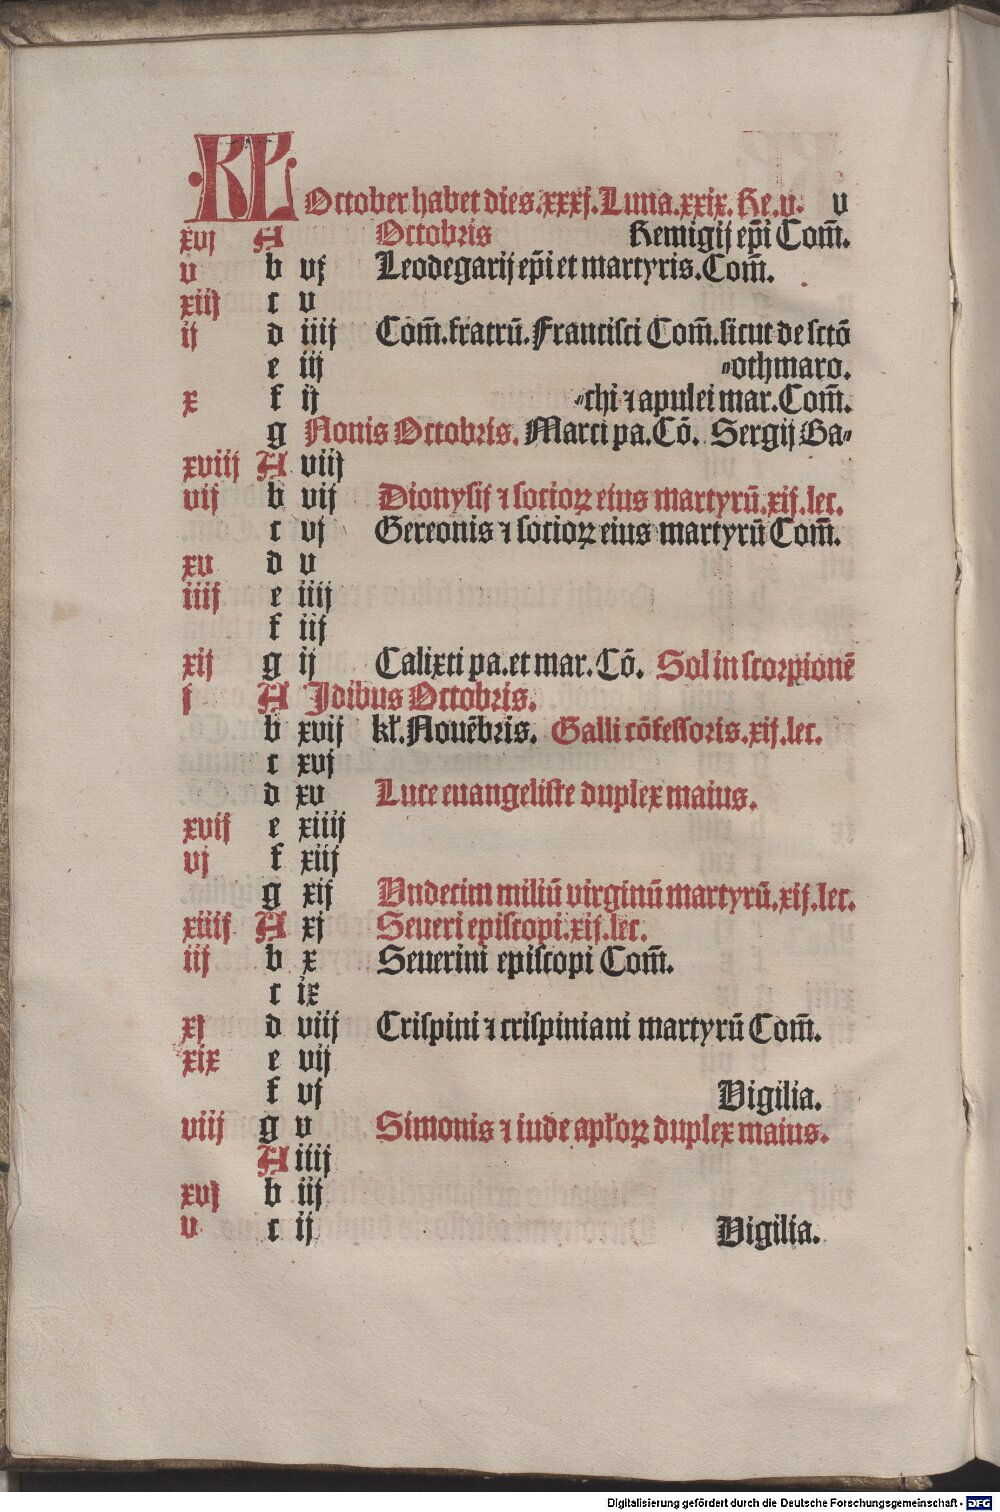 KL October habet dies.xxxj.Luna.xxix.He.v. v
xvj A Octobris Remigij ep̄i Com̄.
v b vj Leodegarij ep̄i et martyris.Com̄.
xiij c v
ij d iiij Com̄.fratrū.Francisci Com̄.sicut de sctō
e iij ⸗othmaro.
x f ij ⸗chi ⁊ apulei mar.Com̄.
g Nonis Octobris. Marci pa.Cō. Sergij Ba⸗
xviij A viij
vij b vij Dionysij ⁊ socioꝝ eius martyrū.xij.lec.
c vj Gereonis ⁊ socioꝝ eius martyrū Com̄.
xv d v
iiij e iiij
f iij
xij g ij Calixti pa.et mar.Cō. Sol in scorpionē
j A Jdibus Octobris.
b xvij kł.Nouēbris. Galli cōfessoris.xij.lec.
c xvj
d xv Luce euangeliste duplex maius.
xvij e xiiij
vj f xiij
g xij Vndecim miliū virginū martyrū.xij.lec.
xiiij A xj Seueri episcopi.xij.lec.
iij b x Seuerini episcopi Com̄.
c ix
xj d viij Crispini ⁊ crispiniani martyrū Com̄.
xix e vij
f vj Vigilia.
viij g v Simonis ⁊ iude apło​ꝝ duplex maius.
A iiij
xvj b iij
v c ij Vigilia.
Digitalisierung gefördert durch die Deutsche Forschungsgemeinschaft - DFG